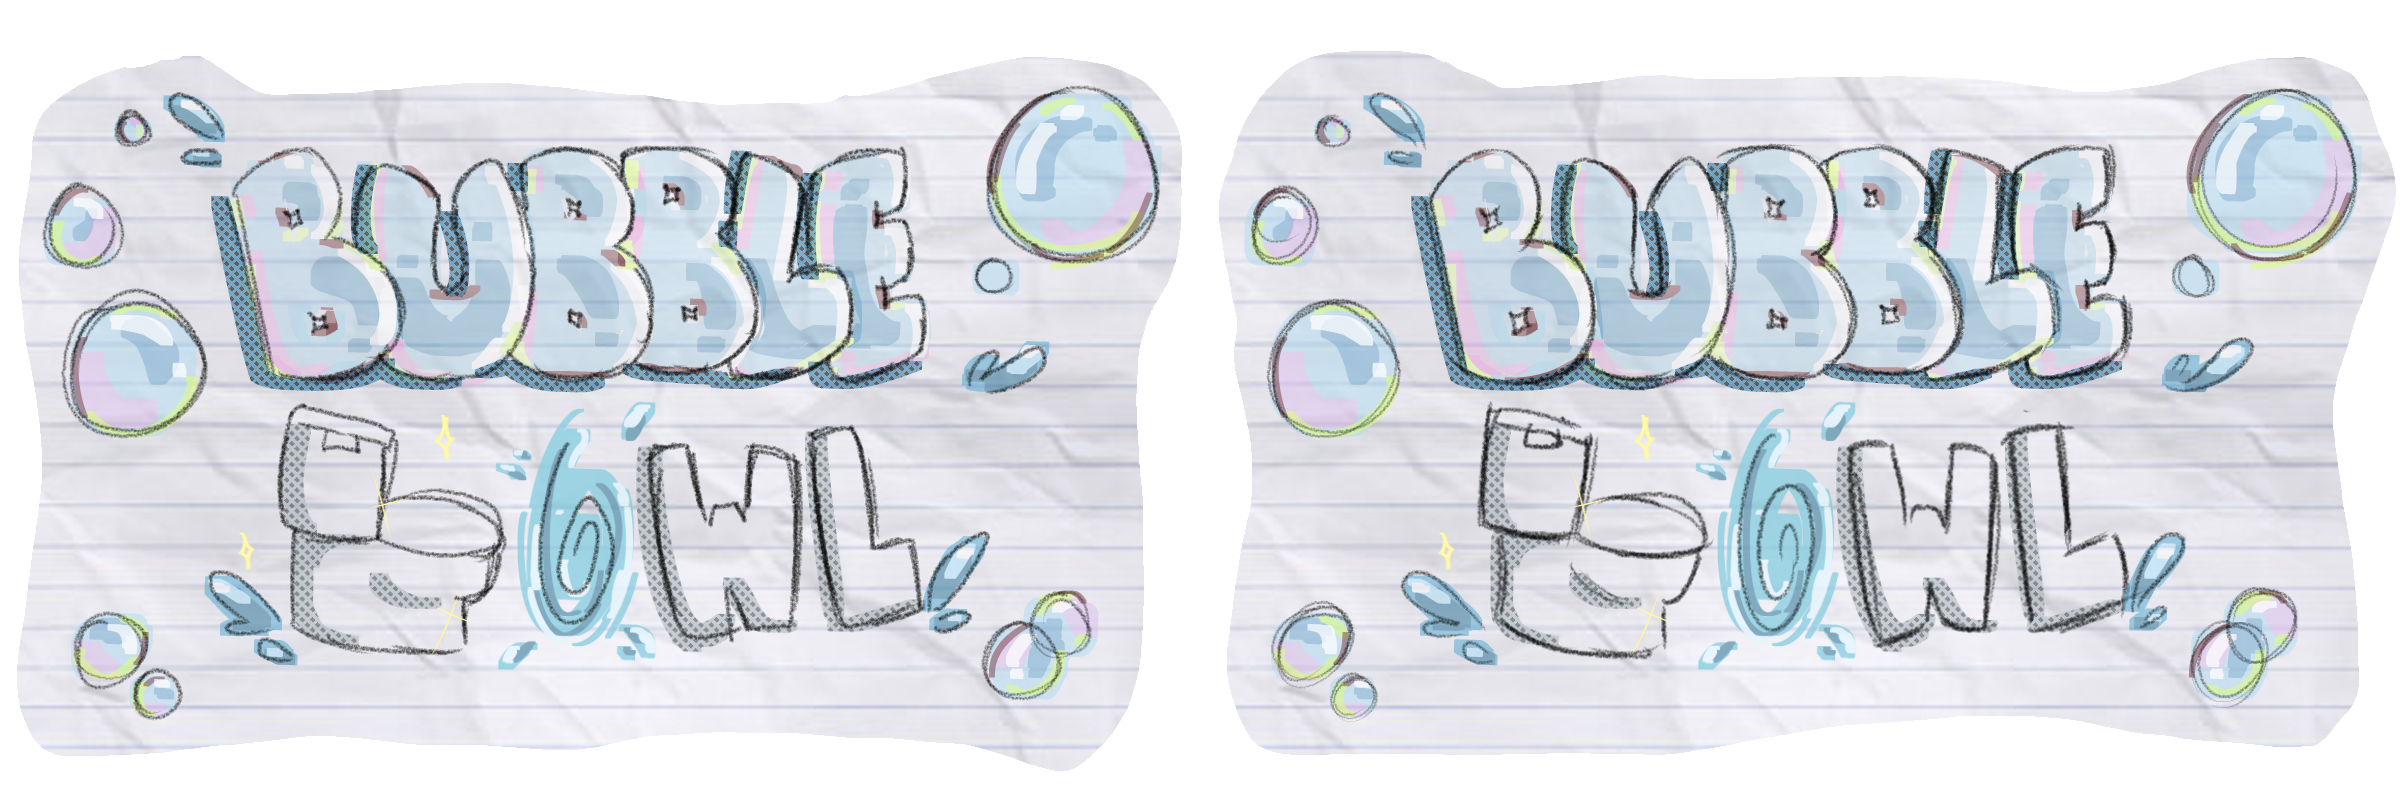 BUBBLE
BOWL
BUBBLE
BOWL